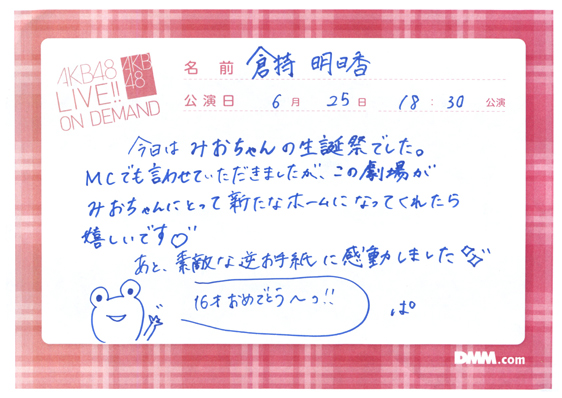 AKB48
LIVE!!
ON DEMAND
AKB
48
名前 倉持 明日香
公演日 6月 25日 18:30 公演
今日は みおちゃんの生誕祭でした。
MCでも言わせていただきましたが、この劇場が
みおちゃんにとって新たなホームになってくれたら
嬉しいです♡
あと、素敵な逆お手紙に感動しました
16才おめでとう〜っ!!
ぱ
DMM.com